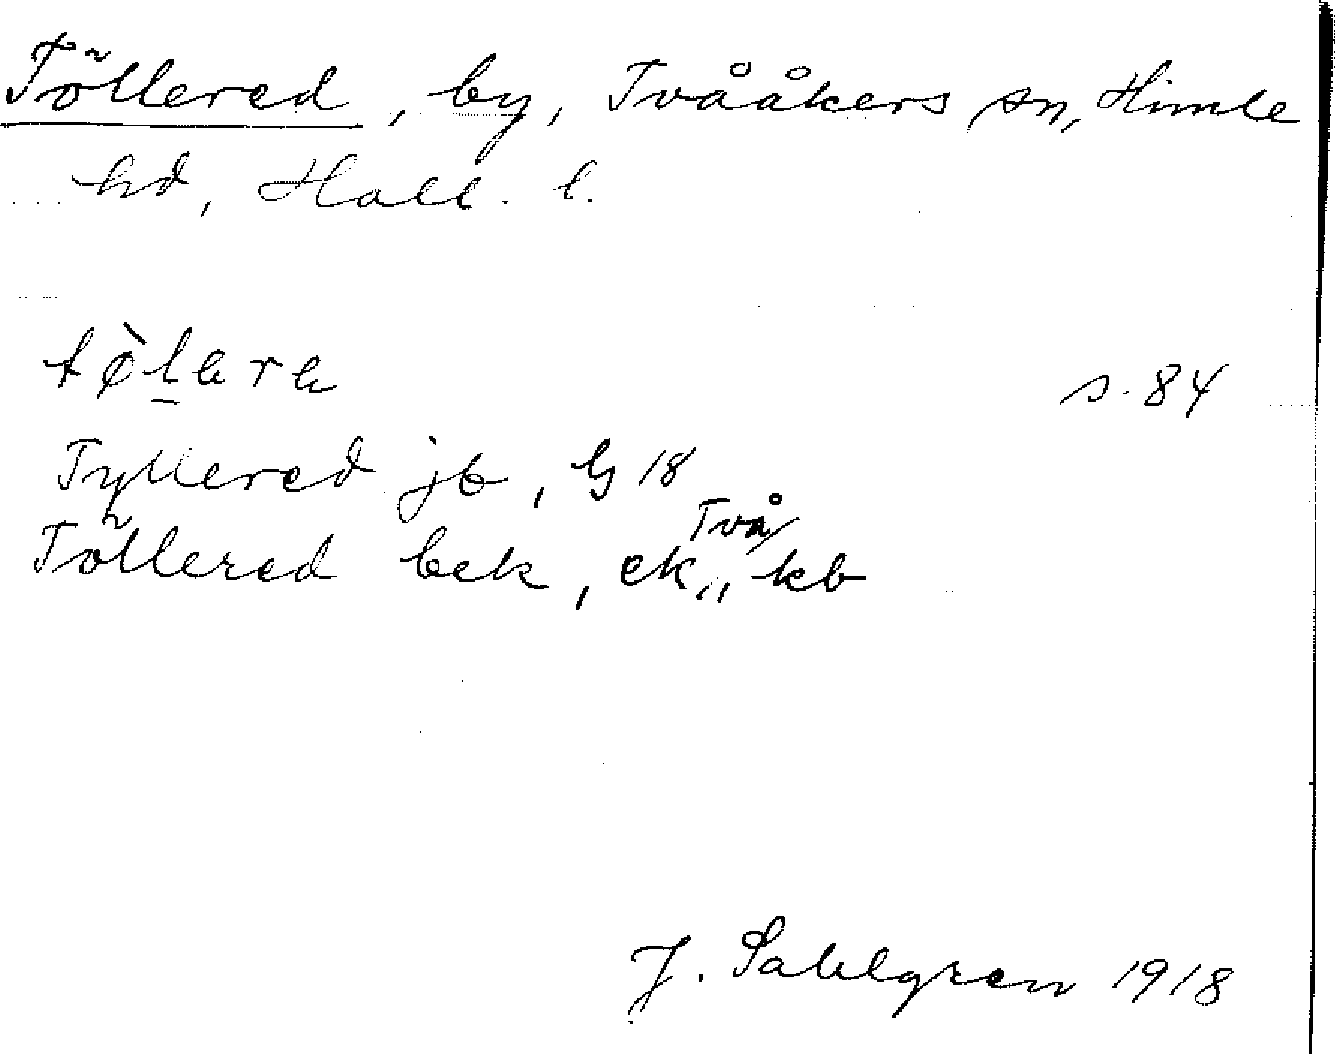 Töllered, by, Tvååkers sn, Himle
hd, Hall. l.
tø̀l̠ara s. 84
Tyllered jb, G 18
Töllered bek, ek,, Två kb
J. Sahlgren 1918